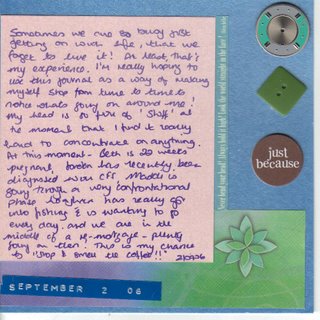 Sometimes we are so busy just
getting on with life, that we
forget to live it! At least, that's
my experience. I'm really hoping to
use this journal as a way of making
myself stop from time to time to
notice whats going on around me!
My head is so full of 'stuff' at
the moment that I find it really
hard to concentrate on anything.
At this moment - Beth is 20 weeks
pregnant, has recently been
diagnosed with CFS, is
going through a very confrontational
phase, has really got
into fishing & is wanting to go
every day, and we are in the
middle of a re-mortgage - plenty
going on then. This is my chance
to "stop & smell the coffee!!"
SEPTEMBER 2 08
just
because
Never bend your head. Always hold it high. Look the world straight in the face!